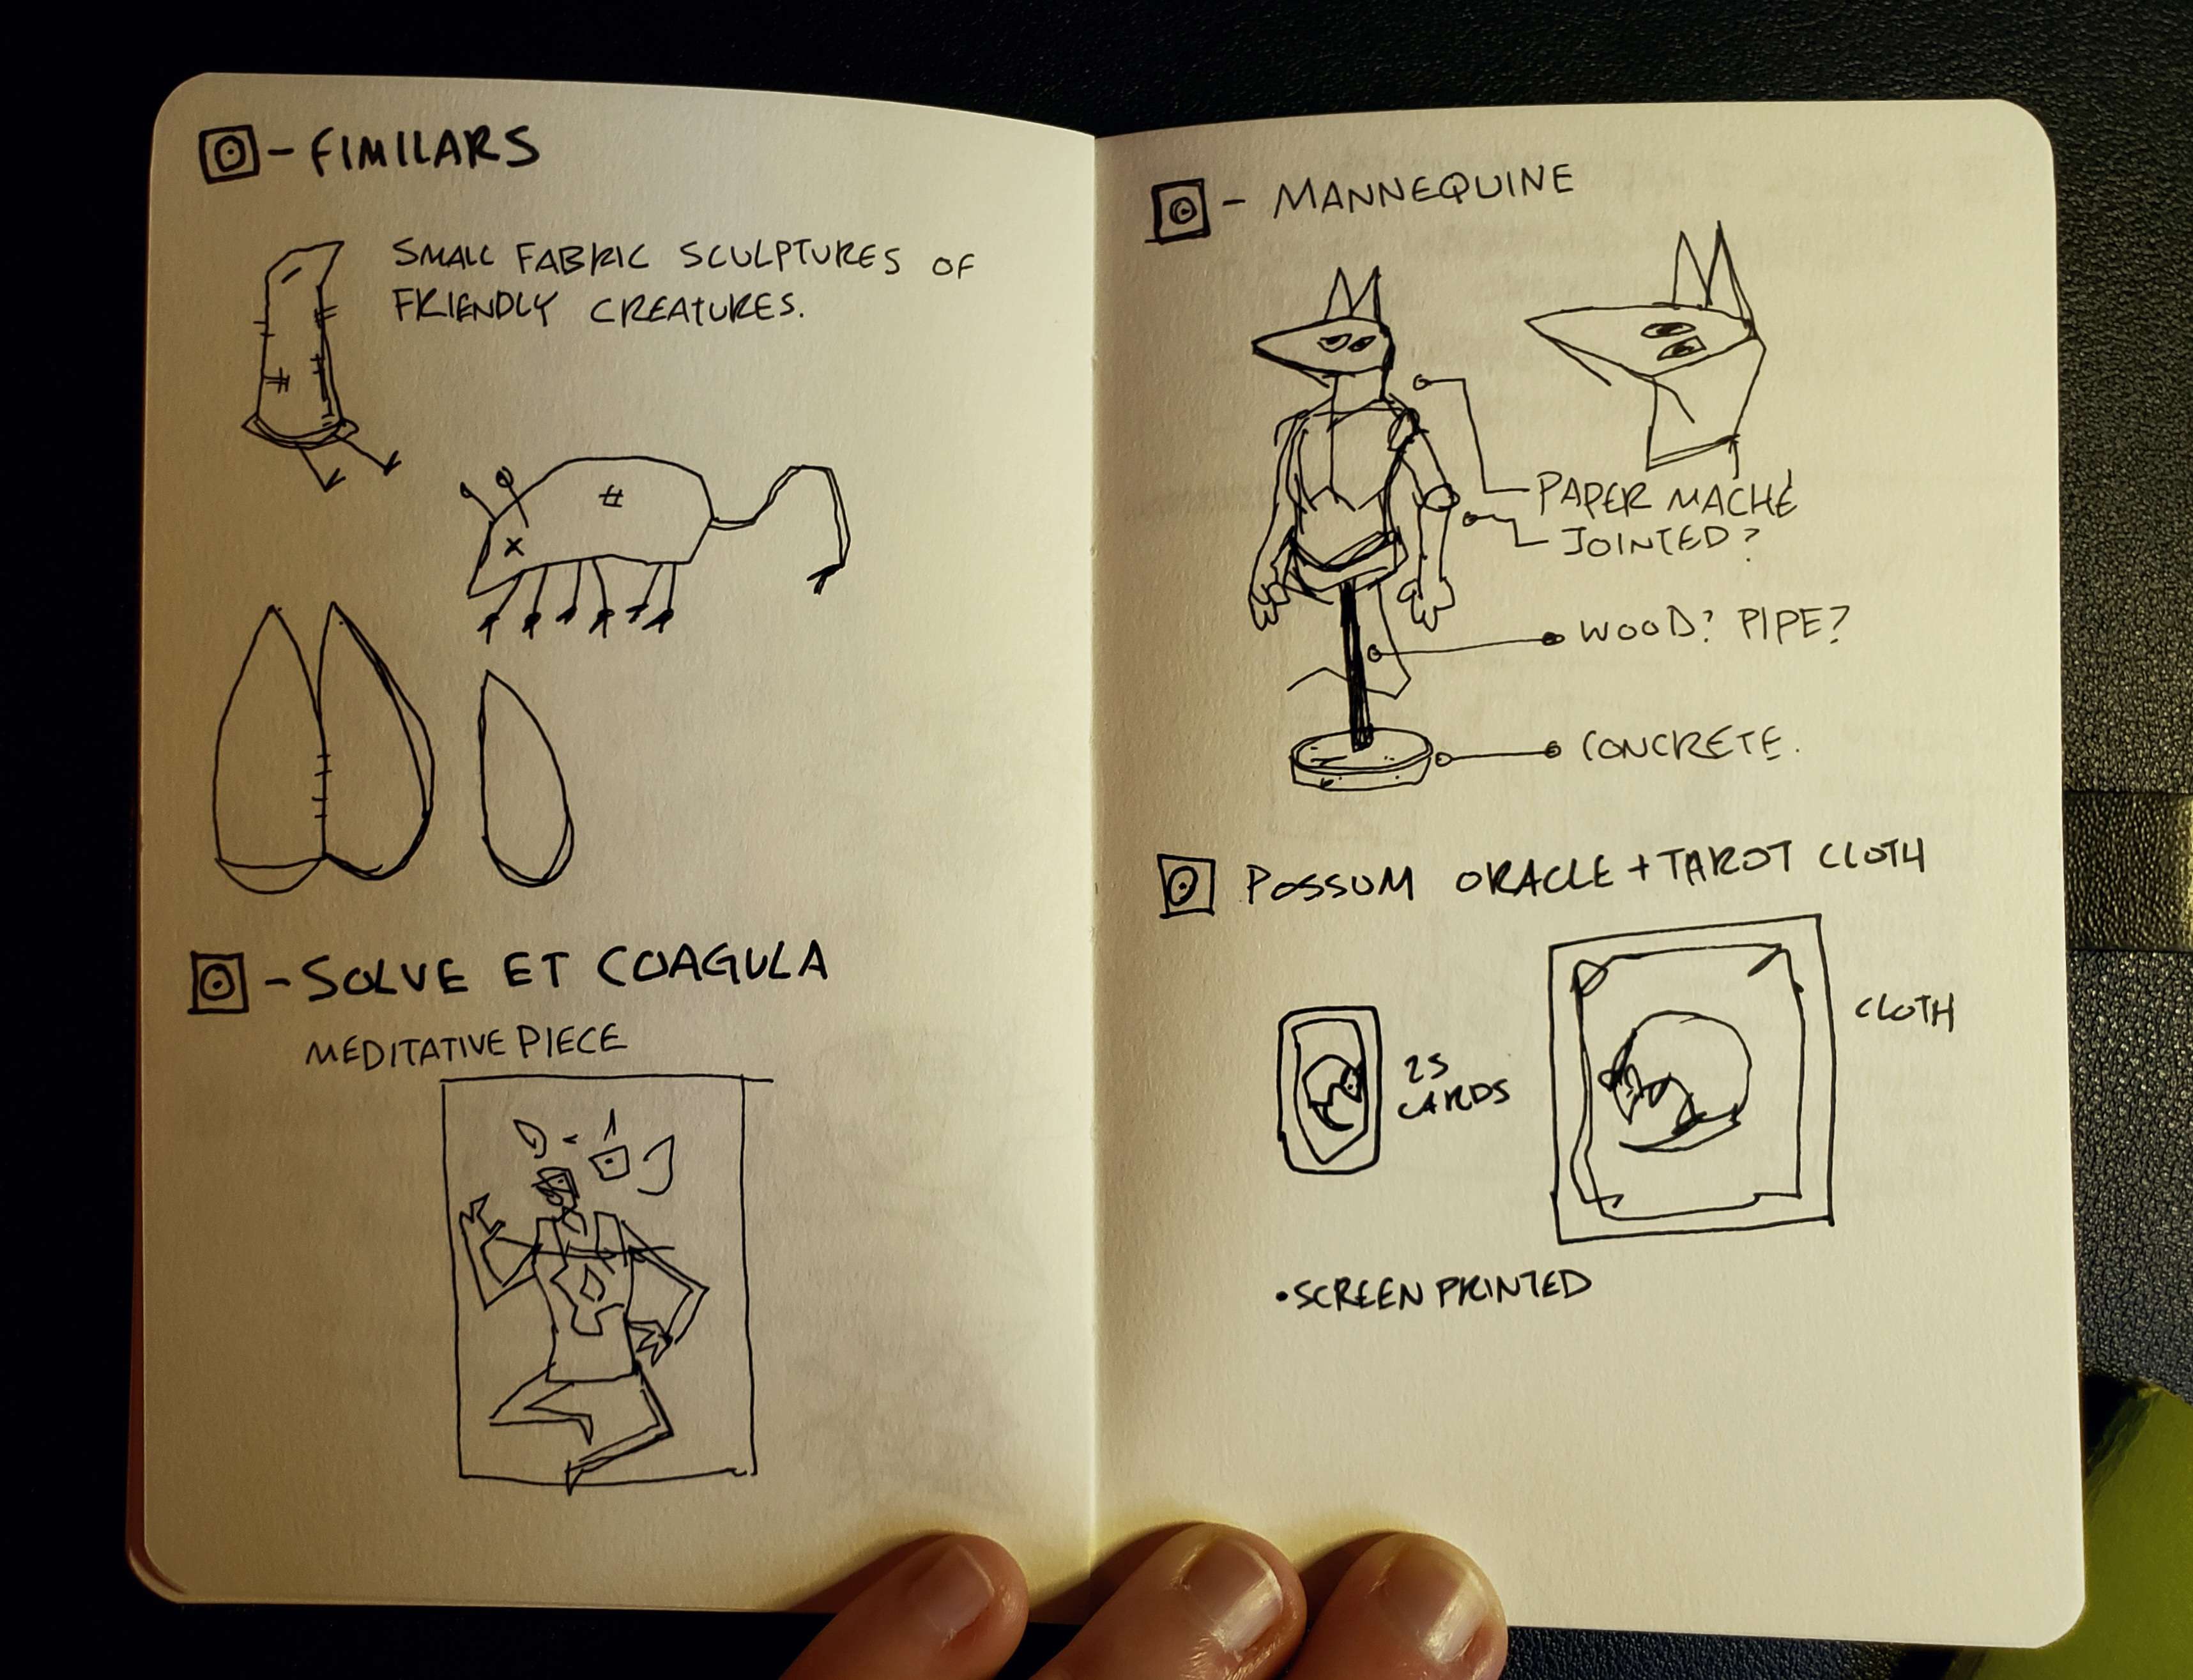 - FIMILARS
SMALL FABRIC SCULPTURES OF
FRIENDLY CREATURES.
- SOLVE ET COAGULA
MEDITATIVE PIECE
- MANNEQUINE
PAPER MACHÉ
JOINTED?
WOOD? PIPE?
CONCRETE.
POSSUM ORACLE + TAROT CLOTH
25
CARDS
CLOTH
• SCREEN PRINTED